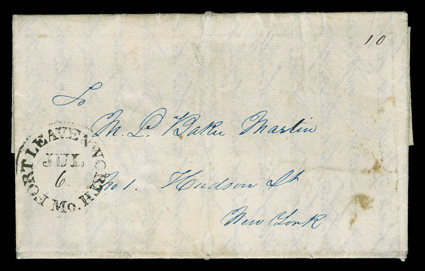 10
To
M. D. Baker Martin
FORT LEAVENWORTH. Mo.
JUL
6
No 1. Hudson St
New York